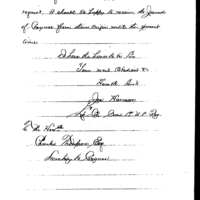 request. I should be happy to receive the Journals
of Congress from their origin until the present
time
I have the honor to be
Your most Obedient &
Humble Servt
Jos Harmar
Lt. Col. Com. 1st U.S. Regt
To the Honble
Charles Thompson Esq
Secretary to Congress